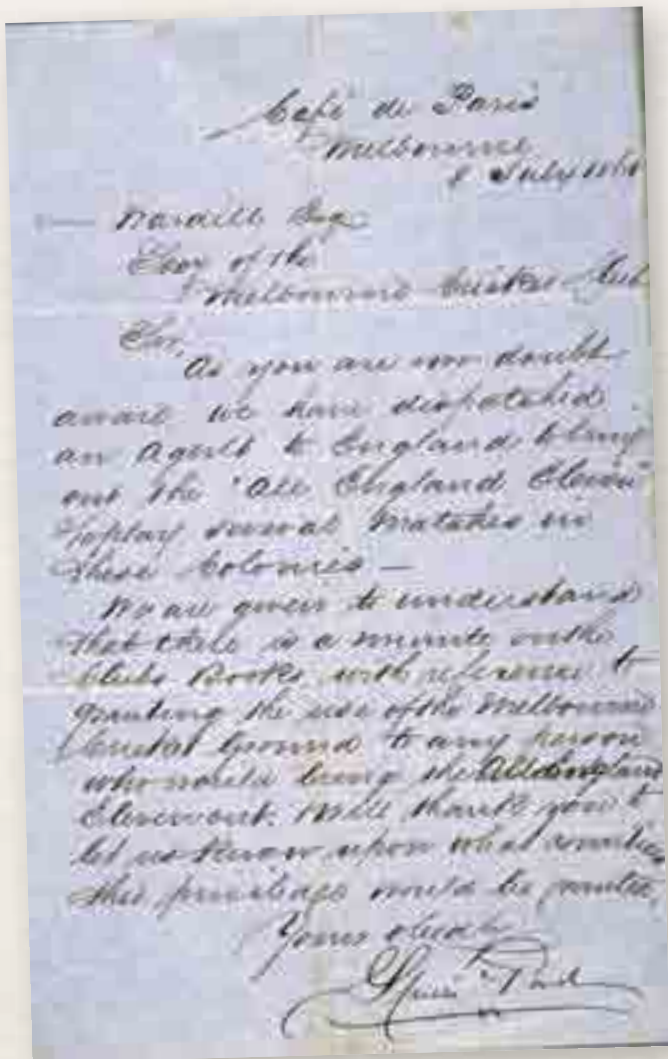 Café de Paris
Melbourne
July 186
Wardill Esq
Secy of the
Melbourne Cricket Club
Sir,
As you are now doubt
aware we have dispatched
an Agent to England to bring
out the "All England Eleven"
to play several Matches in
these Colonies —
We are given to understand
that there is a minute on the
Clubs Books with reference to
granting the use of the Melbourne
Cricket Ground to any person
who would bring the All England
Eleven out. Will thank you to
let us know upon what
this privilege would be granted,
Yours
Spiers & Pond